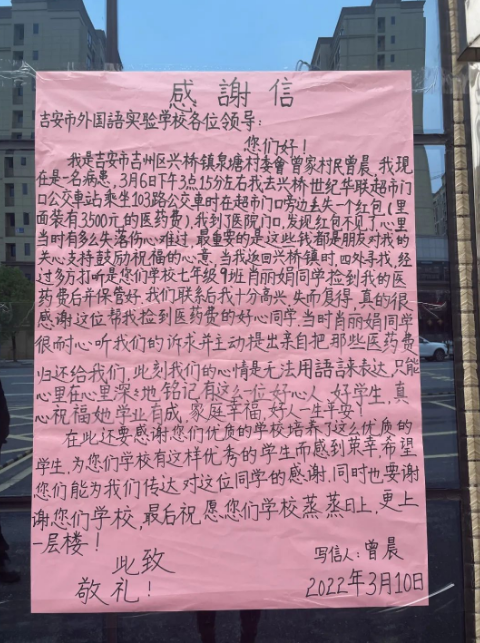 感謝信
吉安市外国語实验学校各位领导:
您们好!
我是吉安市吉州区兴桥镇泉塘村委會曾家村民曾晨,我现
在是一名病患,3月6日下午3点15分左右我去兴桥世纪华联超市门
口公交車站乘坐103路公交車时在超市门口旁边丢失一个红包(里
面装有3500元的医药费),我到了医院门口,发现红包不见了,心里
当时有多么失落伤心难过,最重要的是这些钱都是朋友对我的
关心支持鼓励祝福的心意,当我返回兴桥镇时,四处寻找,经
过多方打听是您们学校七年级9班肖丽娟同学捡到我的医
药费后并保管好,我们联系后我十分高兴,失而复得,真的很
感谢这位帮我捡到医药费的好心同学,当时肖丽娟同学
很耐心听我们的诉求并主动提出亲自把那些医药费
归还给我们,此刻我们的心情是无法用語言来表达,只能
心里在心里深深地铭记,有这么一位好心人,好学生,真
心祝福她学业有成,家庭幸福,好人一生平安!
在此还要感谢您们优质的学校培养了这么优质的
学生,为您们学校有这样优秀的学生而感到荣幸,希望
您们能为我们传达对这位同学的感谢,同时也要谢
谢您们学校,最后祝愿您们学校蒸蒸日上,更上
一层楼!
此致
敬礼!
写信人:曾晨
2022年3月10日